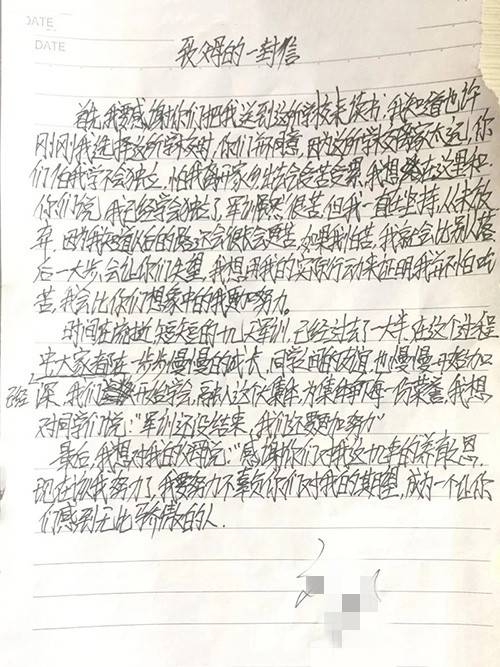 DATE
DATE
致父母的一封信
首先,我要感谢你们把我送到这所学校来读书,我知道也许
刚刚我选择这所学校时,你们并不同意,因为这所学校离家太远,你
们怕我学不会独立,怕我离家出去会受苦受累,我想在这里和
你们说,我已经学会独立了,军训虽然很苦,但我一直在坚持,从未放
弃,因为我知道以后的路还会很长会更苦,如果我怕苦,我就会比别人落
后一大步,会让你们失望,我想用我的实际行动来证明我并不怕吃
苦,我会比你们想象中的我更加努力。
时间在流逝,短短的九天军训,已经过去了一大半,在这个过程
中大家都在一步一步慢慢的成长,同学之间的友谊,也慢慢的更加
深,我们开始学会,融入这个集体,为集体争取每一份荣誉,我想
对同学们说:"军训还没结束,我们还要更加努力"
最后,我想对我的父母说:"感谢你们对我这九年的养育之恩,
现在换我努力了,我要努力不辜负你们对我的期望,成为一个让你
们感到无比骄傲的人.